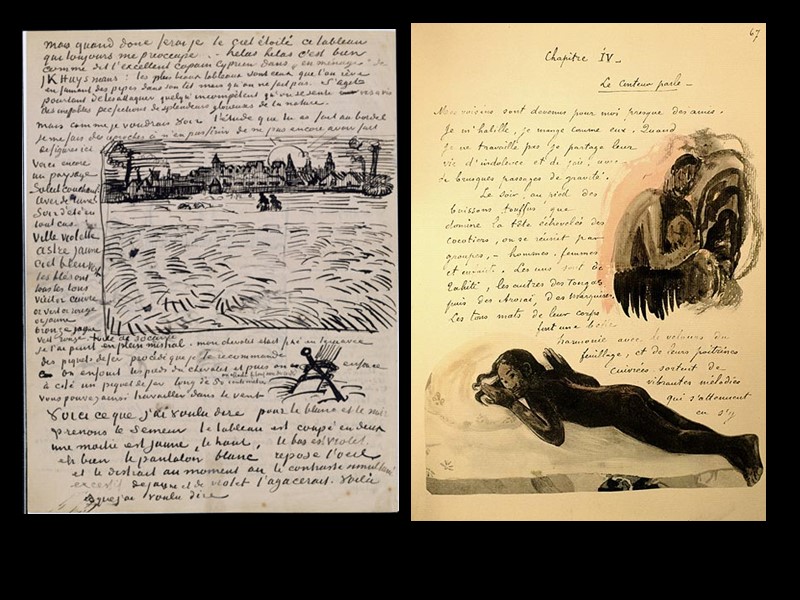 mais quand donc ferai je le ciel étoilé ce tableau
qui toujours me préoccupe - hélas hélas c'est bien
comme dit l'excellent copain Cyprien dans „en ménage" de
J K Huysmans: les plus beaux tableaux sont ceux que l'on rêve
en fumant des pipes dans son lit mais qu'on ne fait pas. S'agit
pourtant de les attaquer quelqu'incompétent qu'on se sente vis à vis
des ineffables perfections de splendeurs glorieuses de la nature.
mais comme je voudrais voir l'étude que tu as fait au bordel
je me fais des reproches à n'en pas finir de ne pas encore avoir fait
de figures ici
Voici encore
un paysage
Soleil couchant
lever de lune
Soir d'été en
tout cas
Ville violette
astre jaune
ciel bleu vert
les blés ont
tous les tons
vieil or cuivre
or vert or rouge
or jaune
bronze jaune
vert rouge toile de 30 carrée
je l'ai peint en plein mistral. mon chevalet était fixé en terre avec
des piquets de fer procédé que je te recommande
on enfonce les pieds du chevalet et puis on enfonce
à côté un piquet de fer long de 50 centimètres
vous pouvez ainsi travailler dans le vent
Voici ce que j'ai voulu dire pour le blanc et le noir
prenons le Semeur le tableau est coupé en deux
une moitié est jaune, le haut, le bas est violet.
eh bien le pantalon blanc repose l'oeil
et le distrait au moment où le contraste simultané
excessif de jaune et de violet l'agacerait. Voilà
ce que j'ai voulu dire
67
Chapitre IV_
Le Conteur parle_
Mes voisins sont devenus pour moi presque des amis.
Je m'habille, je mange comme eux. Quand
je ne travaille pas je partage leur
vie d'indolence et de joie, avec
de brusques passages de gravité.
Le soir, au pied des
buissons touffus que
domine la tête échevelée des
cocotiers, on se réunit par
groupes, - hommes, femmes
et enfants. Les uns sont de
Tahiti, les autres des Tongas
puis des Arorai, des Marquises.
Les tons mats de leur corps
font une belle
harmonie avec le velours du
feuillage, et de leurs poitrines
cuivrées sortent de
vibrantes mélodies
qui s'atténuent
en s'y